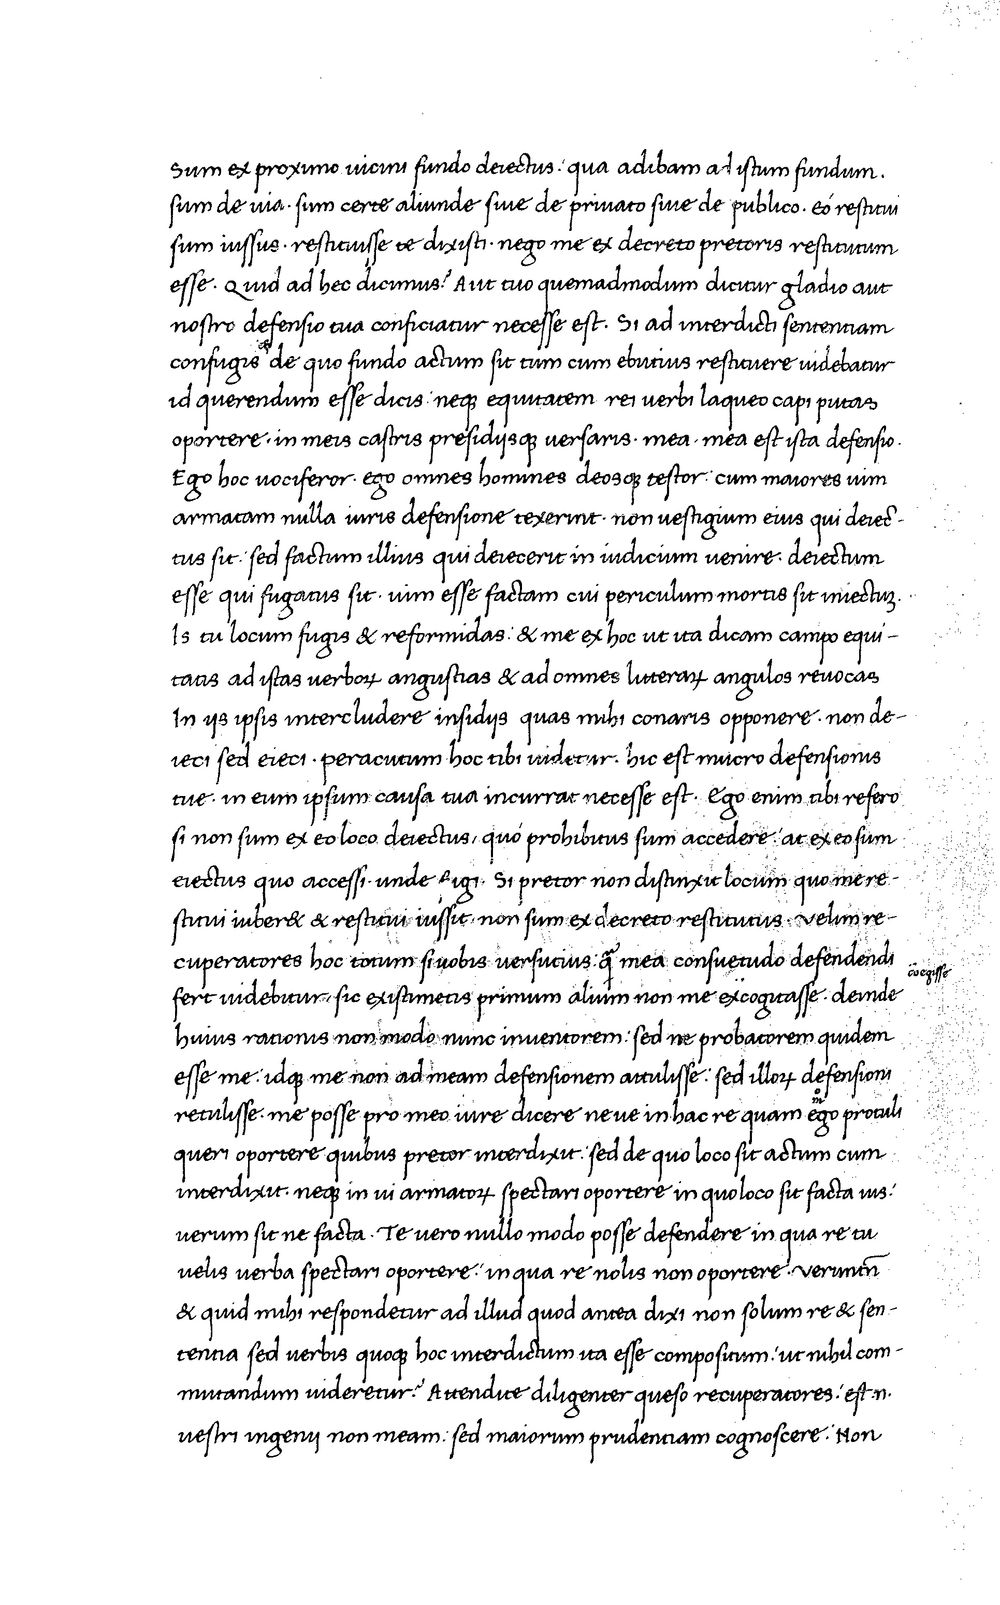 Sum ex proximo uicini fundo deiectus: qua adibam ad istum fundum.
sum de uia. sum certe aliunde siue de priuato siue de publico. eo restitui
sum iussus. restituisse te dixisti. nego me ex decreto pretoris restitutum
esse. Quid ad hec dicimus? Aut tuo quemadmodum dicitur gladio aut
nostro defensio tua conficiatur necesse est. Si ad interdicti sententiam
confugis & de quo fundo actum sit tum cum ebutius restituere uidebatur
id querendum esse dicis: neqꝫ equitatem rei uerbi laqueo capi putas
oportere. in meis castris presidijsqꝫ uersaris. mea. mea est ista defensio.
Ego hoc uociferor. ego omnes homines deosqꝫ testor: cum maiores uim
armatam nulla iuris defensione texerint. non uestigium eius qui deiec-
tus sit: sed factum illius qui deiecerit in iudicium uenire. deiectum
esse qui fugatus sit. uim esse factam cui periculum mortis sit iniectuꝫ.
Is tu locum fugis & reformidas: & me ex hoc ut ita dicam campo equi-
tatis ad istas uerboꝝ angustias & ad omnes litteraꝝ angulos reuocas
In ijs ipsis intercludere insidijs quas mihi conaris opponere. non de-
ieci sed eieci. peracutum hoc tibi uidetur. hic est mucro defensionis
tue. in eum ipsum causa tua incurrat necesse est. Ego enim tibi refero
si non sum ex eo loco deiectus, quo prohibitus sum accedere: at ex eo sum
eiectus quo accessi. unde fugi. Si pretor non distinxit locum quo me re-
stitui iuber& & restitui iussit. non sum ex decreto restitutus. velim re-
cuperatores hoc totum si uobis uersutius: q̃ mea consuetudo defendendi
fert uidebitur, sic existimetis primum alium non me excogitasse. deinde
cōegisse
huius rationis non modo nunc inuentorem: sed ne probatorem quidem
esse me. idqꝫ me non ad meam defensionem attulisse: sed illoꝝ defensioni
retulisse. me posse pro meo iure dicere neue in hac re quam ego protuli
queri oportere quibus pretor interdixit: sed de quo loco sit actum cum
interdixit. neqꝫ in ui armatoꝝ spectari oportere in quo loco sit facta uis:
verum sit ne facta. Te vero nullo modo posse defendere in qua re tu
uelis uerba spectari oportere: in qua re nolis non oportere. veruntn̄
& quid mihi respondetur ad illud quod antea dixi non solum re & sen-
tentia sed uerbis quoqꝫ hoc interdictum ita esse compositum: ut nihil com-
mutandum uideretur? Attendite diligenter queso recuperatores: est .n.
uestri ingenij non meam: sed maiorum prudentiam cognoscere: Non